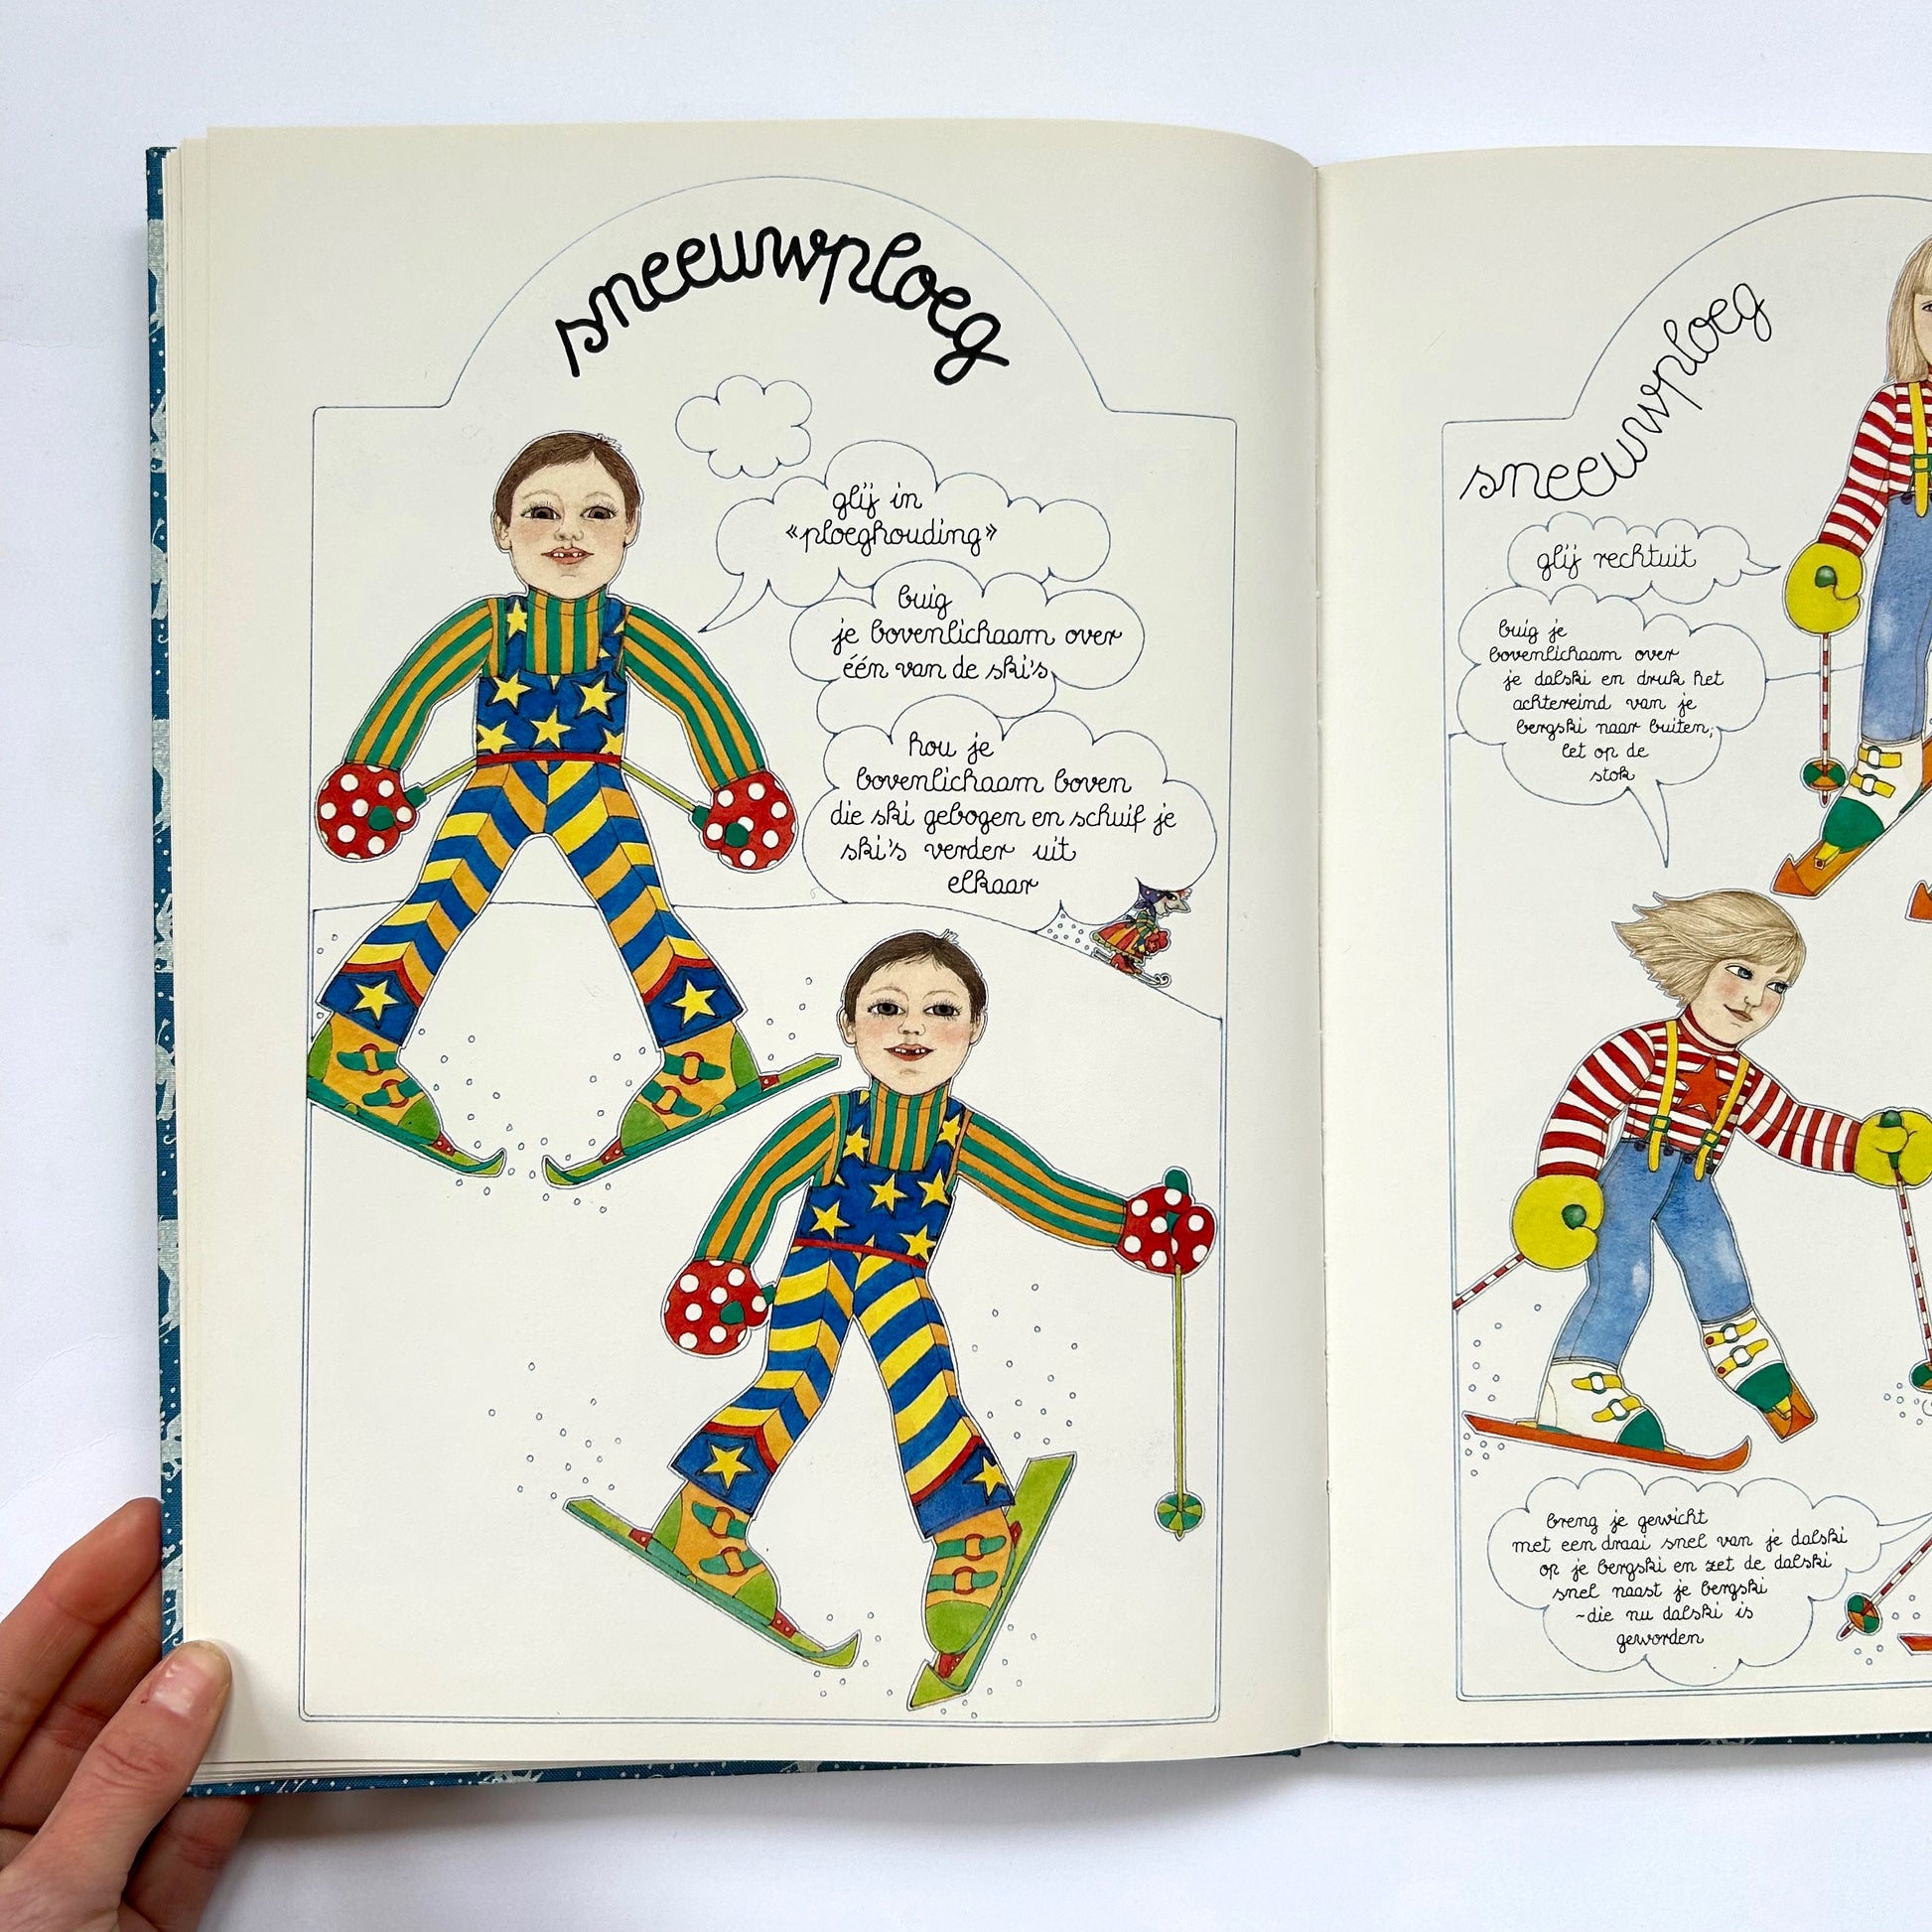 sneeuwploeg
glij in
«ploeghouding»
buig
je bovenlichaam over
één van de ski's
hou je
bovenlichaam boven
die ski gebogen en schuif je
ski's verder uit
elkaar
sneeuwploeg
glij rechtuit
buig je
bovenlichaam over
je dalski en druk het
achtereind van je
bergski naar buiten,
let op de
stok
breng je gewicht
met een draai snel van je dalski
op je bergski en zet de dalski
snel naast je bergski
~die nu dalski is
geworden